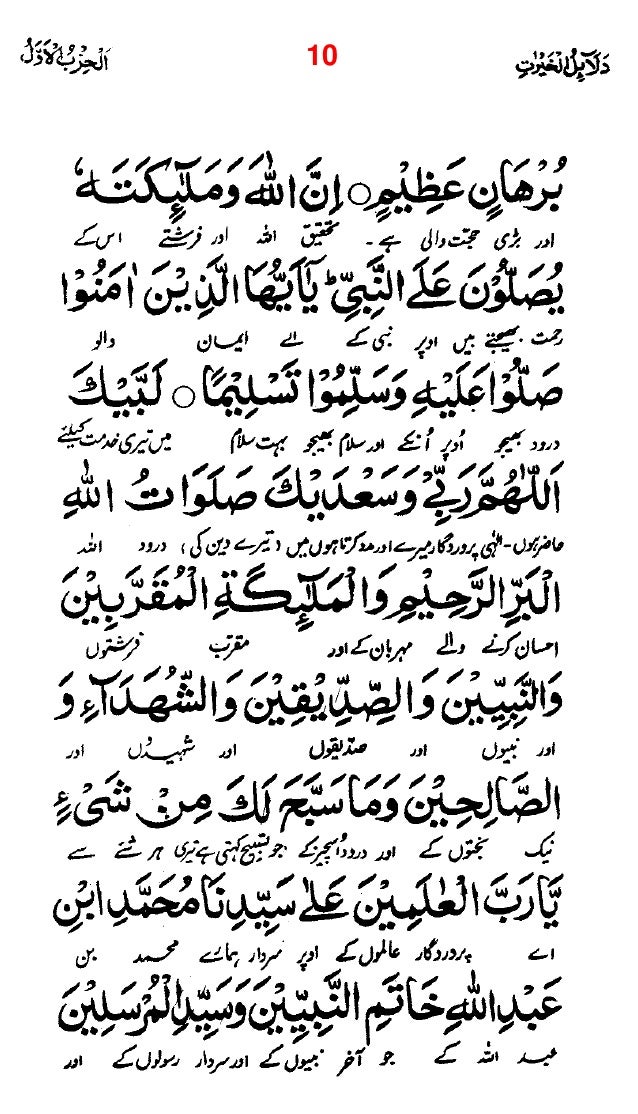 دَلَآئِلُ الْخَيْرٰتِ 10 اَلْحِزْبُ الْاَوَّلُ
بُرْهَانٍ عَظِيْمٍ ○ اِنَّ اللّٰهَ وَمَلٰٓئِكَتَهٗ
اور بڑی حجت والی ہے۔ تحقیق اللہ اور فرشتے اس کے
يُصَلُّوْنَ عَلَى النَّبِيِّ ؕ يٰٓاَيُّهَا الَّذِيْنَ اٰمَنُوْا
رحمت بھیجتے ہیں اوپر نبی کے اے ایمان والو
صَلُّوْا عَلَيْهِ وَسَلِّمُوْا تَسْلِيْمًا ○ لَبَّيْكَ
درود بھیجو اوپر اُنکے اور سلام بھیجو بہت سلام میں تیری خدمت کیلئے
اَللّٰهُمَّ رَبِّيْ وَسَعْدَيْكَ صَلَوَاتُ اللّٰهِ
حاضر ہوں۔ الٰہی پروردگار میرے اور مدد کرتا ہوں میں (تیرے دین کی) درود اللہ
الْبَرِّ الرَّحِيْمِ وَالْمَلٰٓئِكَةِ الْمُقَرَّبِيْنَ
احسان کرنے والے مہربان کے اور مقرب فرشتوں
وَالنَّبِيِّيْنَ وَالصِّدِّيْقِيْنَ وَالشُّهَدَآءِ وَ
اور نبیوں اور صدیقوں اور شہیدُں اور
الصَّالِحِيْنَ وَمَا سَبَّحَ لَكَ مِنْ شَيْءٍ
نیک بختوں کے اور درود اُسچیز کے جو تسبیح کہتی ہے تیری ہر شئے سے
يَّا رَبَّ الْعٰلَمِيْنَ عَلٰى سَيِّدِنَا مُحَمَّدِ ابْنِ
اے پروردگار عالموں کے اوپر سردار ہمارے محمد بن
عَبْدِ اللّٰهِ خَاتَمِ النَّبِيِّيْنَ وَسَيِّدِ الْمُرْسَلِيْنَ
عبد اللہ کے جو آخر نبیوں کے اور سردار رسولوں کے اور